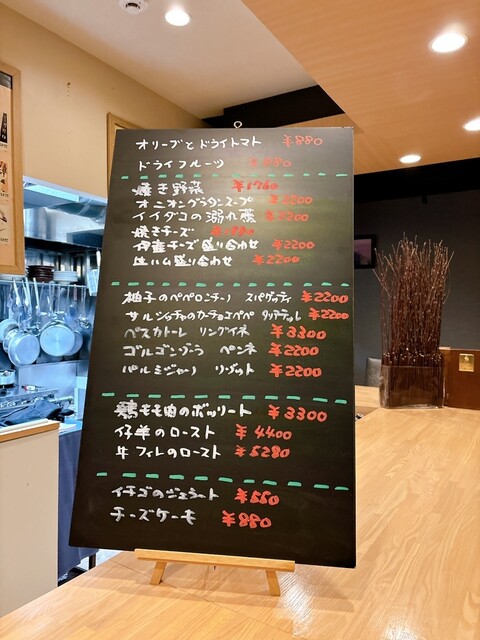 オリーブとドライトマト ¥880
ドライフルーツ ¥880
焼き野菜 ¥1760
オニオングラタンスープ ¥2200
イイダコの溺れ煮 ¥2200
焼きチーズ
伊産チーズ盛り合わせ ¥2200
生ハム盛り合わせ ¥2200
柚子のペペロンチーノ スパゲッティ ¥2200
サルシッチャのカーチョエペペ タリアテッレ ¥2200
ペスカトーレ リングイネ ¥3300
ゴルゴンゾーラ ペンネ ¥2200
パルミジャーノ リゾット ¥2200
鶏もも肉のボッリート ¥3300
仔羊のロースト ¥4400
牛フィレのロースト ¥5280
イチゴのジェラート ¥550
チーズケーキ ¥880